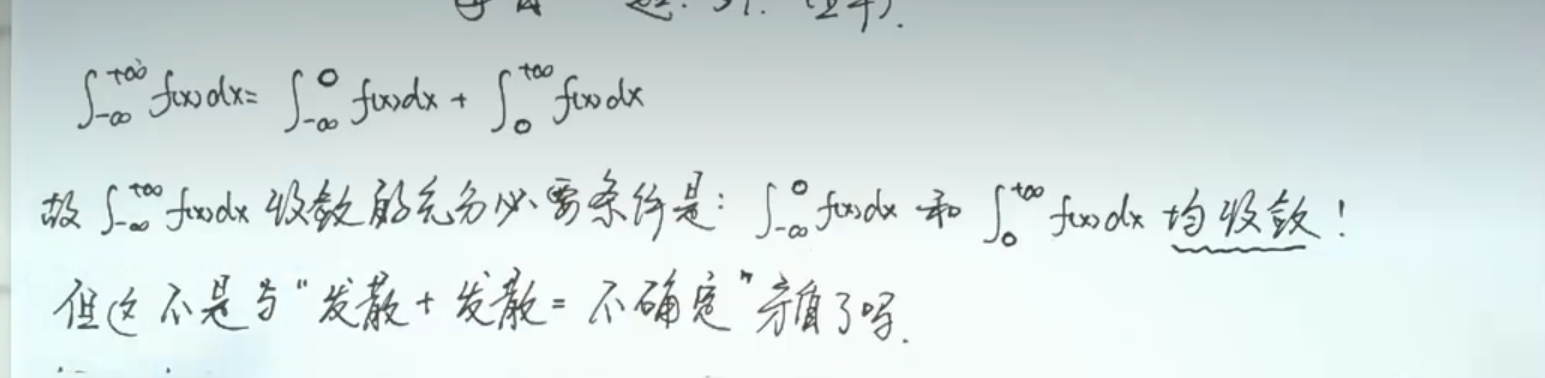 ∫_{-∞}^{+∞} f(x)dx = ∫_{-∞}^{0} f(x)dx + ∫_{0}^{+∞} f(x)dx
故 ∫_{-∞}^{+∞} f(x)dx 收敛的充分必要条件是: ∫_{-∞}^{0} f(x)dx 和 ∫_{0}^{+∞} f(x)dx 均收敛!
但这不是与“发散+发散=不确定”矛盾了吗.